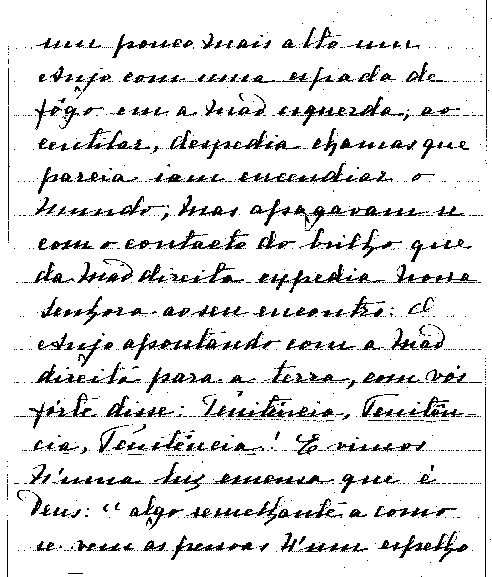 um pouco mais alto um
Anjo com uma espada de
fôgo em a mão esquerda; ao
centilar, despedia chamas que
parecia iam encendiar o
mundo; mas apagavam-se
com o contacto do brilho que
da mão direita expedia Nossa
Senhora ao seu encontro: O
Anjo apontando com a mão
direita para a terra, com vós
forte disse: Penitência, Penitên-
cia, Penitência! E vimos
n'uma luz emensa que é
Deus: "algo semelhante a como
se vem as pessoas n'um espelho